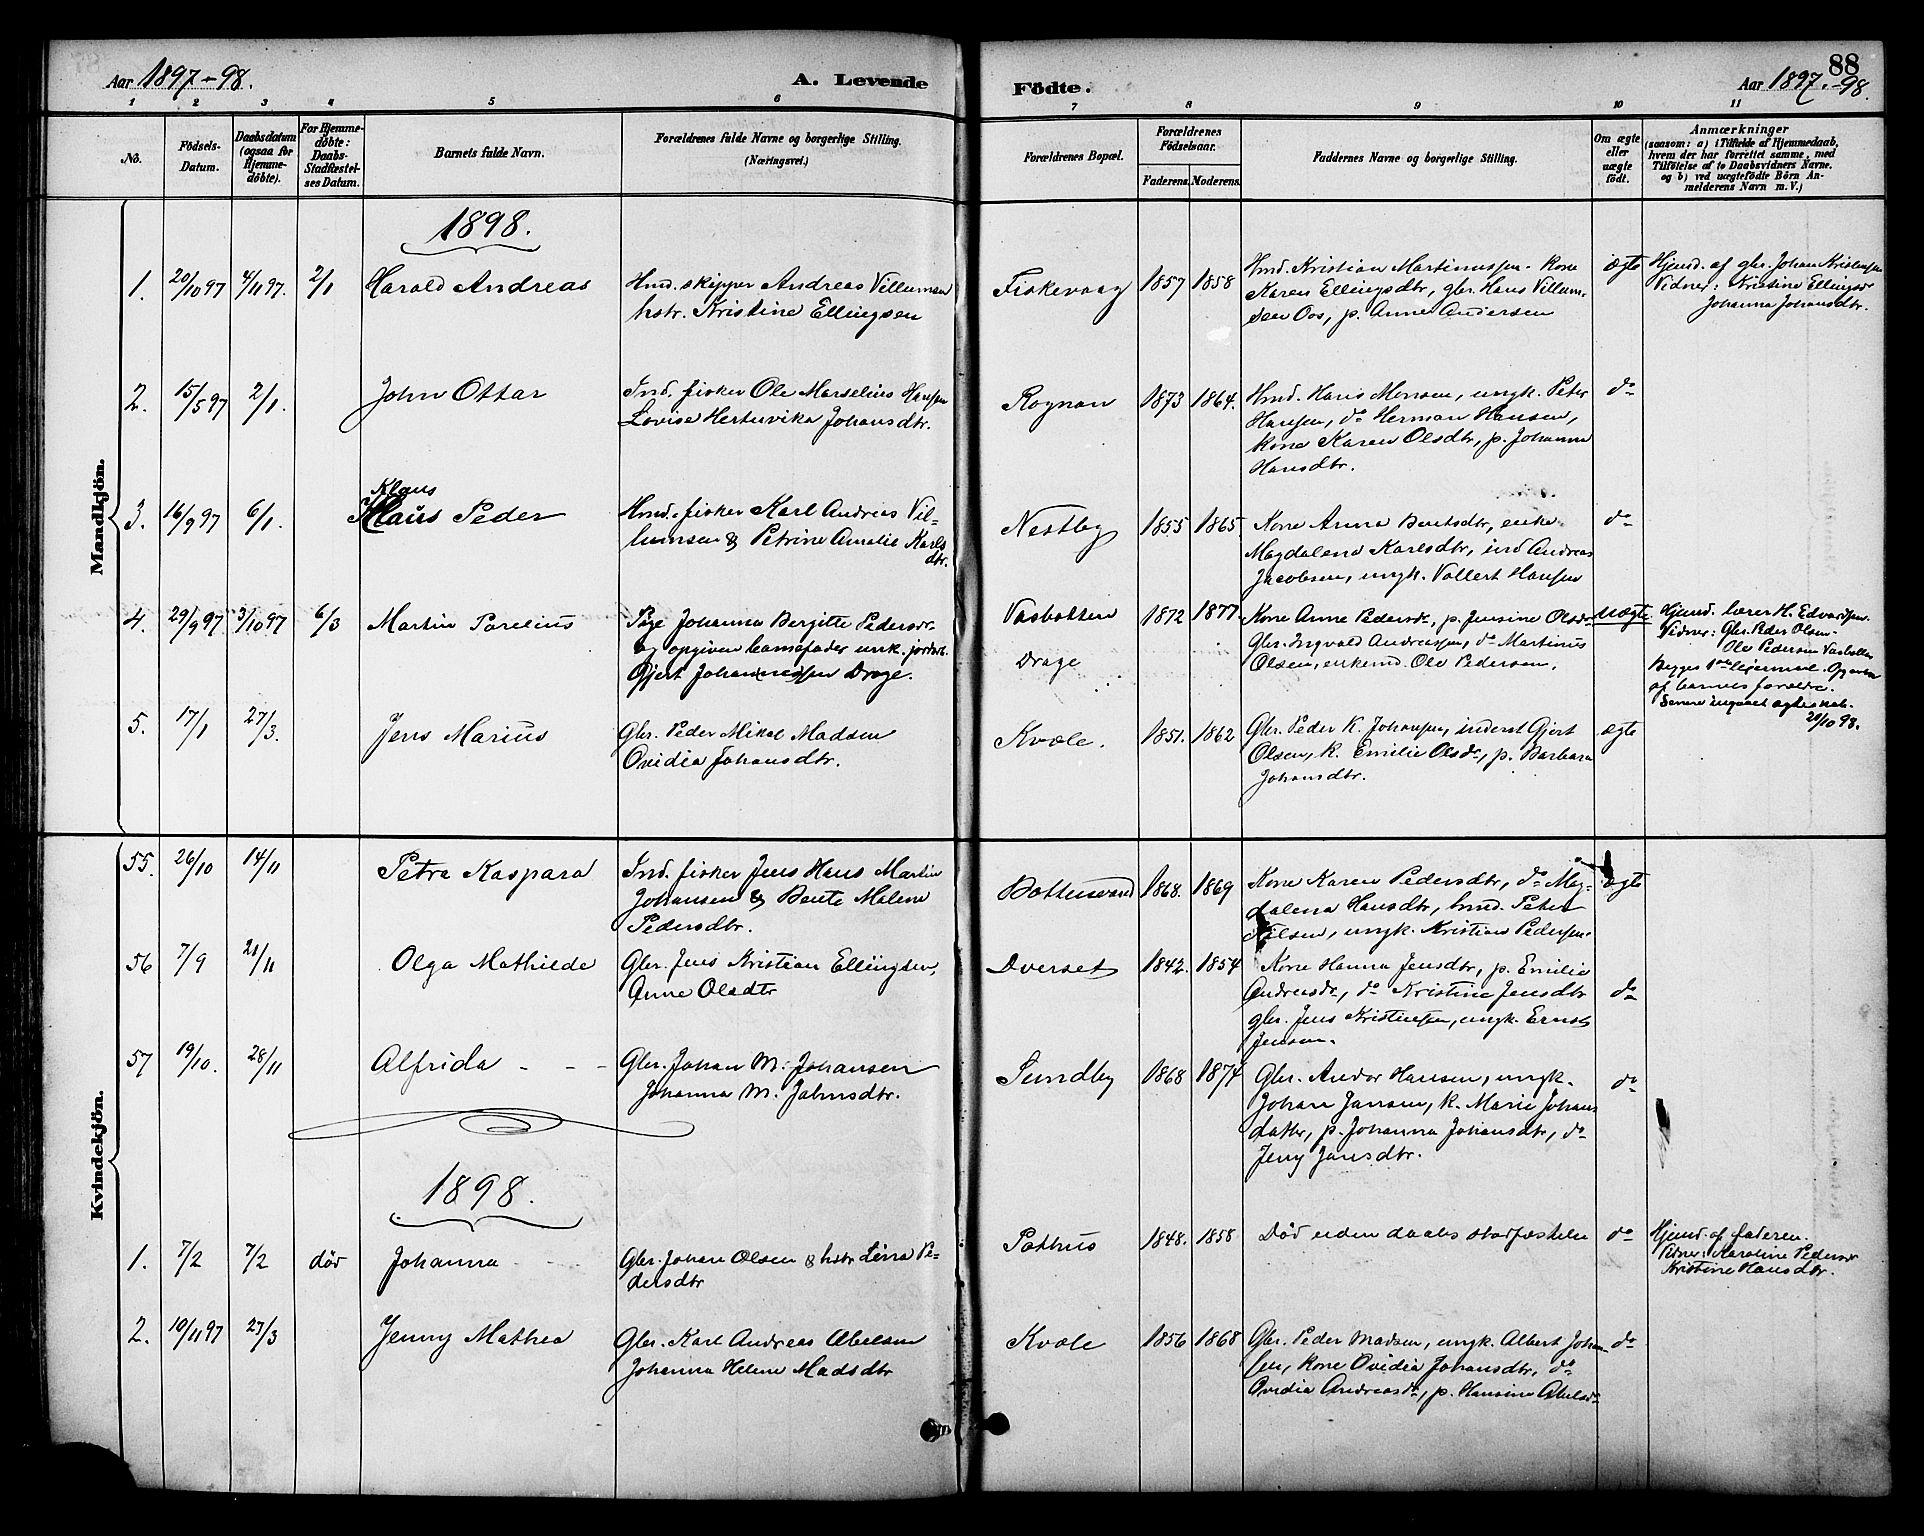 Aar 1897-98.
A. Levende
Födte.
88
Aar 1897.-98.
1 2 3 4 5 6 7 8 9 10 11
No.
Födsels-
Datum.
Daabsdatum
(ogsaa for
Hjemme-
döbte).
For Hjemme-
döbte:
Daabs-
Stadfæstel-
ses Datum.
Barnets fulde Navn.
Forældrenes fulde Navne og borgerlige Stilling.
(Næringsvei.)
Forældrenes Bopæl.
Forældrenes
Födselsaar.
Faderens. Moderens.
Faddernes Navne og borgerlige Stilling.
Om ægte
eller
uægte
födt.
Anmærkninger
(saasom: a) i Tilfælde af Hjemmedaab,
hvem der har forrettet samme, med
Tilföielse af to Daabsvidners Navne.
og b) ved uægtefödte Börn An-
melderens Navn m. V.)
Mandkjön.
1898.
1. 20/10 97 4/11 97. 2/1 Harald Andreas
Hmd. skipper Andreas Villumsen
hstr. Kristine Ellingsen
Fiskevaag 1857 1858
Hmd. Kristian Martinussen. kone
Karen Ellingsdtr, gbr. Hans Villum-
sen Oos, p. Anne Andersen
ægte
Hjemd. af gbr. Johan Kristensen
Vidner: Kristine Ellingsdr
Johanna Johansdtr.
2. 15/5 97 2/1. John Ottar
Ind. fisker Ole Marselius Hansen
Lovise Hertnvika Johansdtr.
Rognan 1873 1864.
Hmd. Hans Monsen, ungk. Peter
Hansen, do Herman Hansen,
kone Karen Olsdtr, p. Johanna
Hansdtr.
do
3. 16/9 97 6/1. Klaus
Klaus Peder
Hmd. fisker Karl Andreas Vil-
lumsen & Petrine Amalie Karls
dtr.
Nestby 1855 1865.
Kone Anna Bentsdtr, enke
Magdalena Karlsdtr, ind Andreas
Jacobsen, ungk. Vollert Hansen
do
4. 29/9 97 3/10 97 6/3 Martin Parelius
Pige Johanna Bergitte Pedersdr
og opgiven barnefader unk. jordarb.
Gjert Johannessen Drage.
Vasbotten
Drage
1872 1877
Kone Anne Pedersdr, p. Jensine Olsdr
Gbr. Ingvald Andreassen, do Martinus
Olsen, enkemd. Ole Pedersen.
uægte
Hjemd. lærer H. Edvardsen.
Vidner: Gbr. Peder Olsen
Ole Pedersen Vasbotten
Begges 1ste leiermaal. Opgiven
af barnets forældre.
Senere indgaaet ægteskab.
20/10 98.
5. 17/1 27/3. Jens Marius
Gbr. Peder Mikal Madsen
Ovidia Johansdtr.
Kvæle. 1851. 1862
Gbr. Peder K. Johansen, inderst Gjert
Olsen, k. Emilie Olsdr, p. Barbara
Johansdtr.
ægte
Kvindekjön.
55. 26/10 14/11 Petra Kaspara
Ind. fisker Jens Hans Martin
Johansen & Bente Malene
Pedersdtr.
Bottenvand 1868. 1869
Kone Karen Pedersdtr, do Mag-
dalena Hansdtr, hmd. Peter
Nilsen, ungk. Kristian Pedersen.
ægte
56 7/9 21/11 Olga Mathilde
Gbr. Jens Kristian Ellingsen,
Anne Olsdtr
Dverset 1842. 1854
Kone Hanna Jensdtr, p. Emilie
Andreasdr, do Kristine Jensdtr
gbr. Jens Kristensen, ungk. Ernst
Jensen.
do
57 19/10. 28/11 Alfrida - - -
Gbr. Johan M. Johansen
Johanna M. Jahnsdtr.
Sundby 1868 1874
Gbr. Andor Hansen, ungk.
Johan Jansen, k. Marie Johans
datter, p. Johanna Johansdtr, do
Jeny Jansdtr.
do
1898.
1. 7/2 7/2 död Johanna - -
Gbr. Johan Olsen & hstr Lina Pe-
dersdtr
Pothus 1848. 1858
Död uden daabs stadfæstelse
do
Hjemd. af faderen.
Vidner: Karoline Pedersdr
Kristine Hansdtr.
2. 10/11 97 27/3 Jenny Mathea
Gbr. Karl Andreas Abelsen
Johanna Helene Madsdtr
Kvæle 1856 1868
Gbr. Peder Madsen, ungk. Albert Johan-
sen, kone Ovidia Johansdtr, do
Ovidia Andreasdr, p. Hansine Abelsdr
do